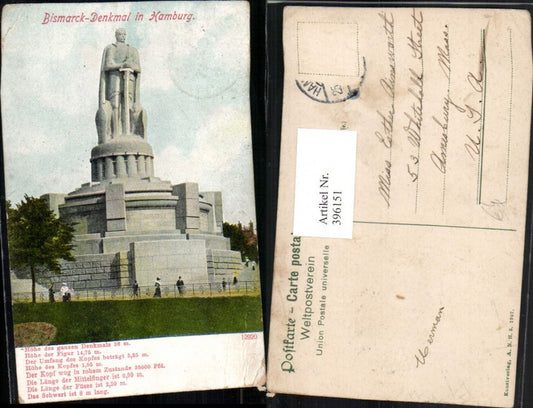 Bismarck-Denkmal in Hamburg.
12920
Höhe des ganzen Denkmals 36 m.
Höhe der Figur 14,75 m.
Der Umfang des Kopfes beträgt 5,35 m.
Höhe des Kopfes 1,85 m.
Der Kopf wog in rohem Zustande 28000 Pfd.
Die Länge der Mittelfinger ist 0,80 m.
Die Länge der Füsse ist 2,30 m.
Das Schwert ist 8 m lang.
Miss Esther Ainsworth
53 Whitehall Street
Amesbury, Mass.
U.S.A
Postkarte – Carte posta
Weltpostverein
Union Postale universelle
Artikel Nr.
396151
Herman
Kunstverlag